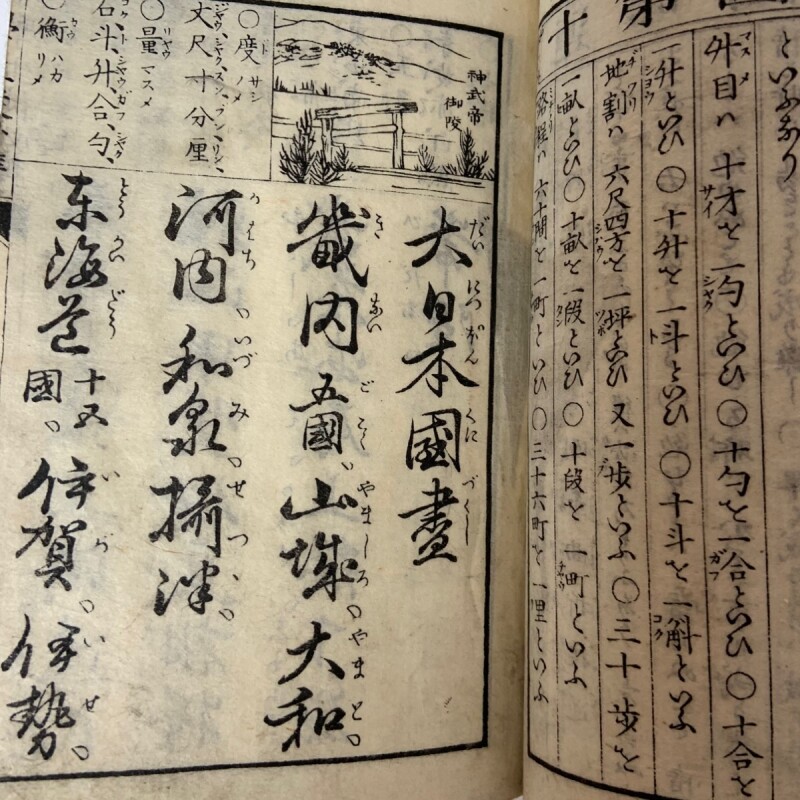 第十
といふなり
舛目ハ 十才を 一勺といひ 〇 十勺を 一合といひ 〇 十合を
一升といひ 〇 十升を 一斗といひ 〇 十斗を 一斛といふ
地割ハ 六尺四方を 一坪といひ 又 一歩といふ 〇 三十歩を
一畝といひ 〇 十畝を 一段といひ 〇 十段を 一町といふ
路程ハ 六十間を 一町といひ 〇 三十六町を 一里といふ
神武帝
御陵
〇度 サシノメ
丈尺寸分厘
〇量 マスメ
石斗升合勺、
〇衡 ハカリメ
大日本國盡
畿内 五國、山城、大和、
河内、和泉、攝津、
東海道 十五國、伊賀、伊勢、